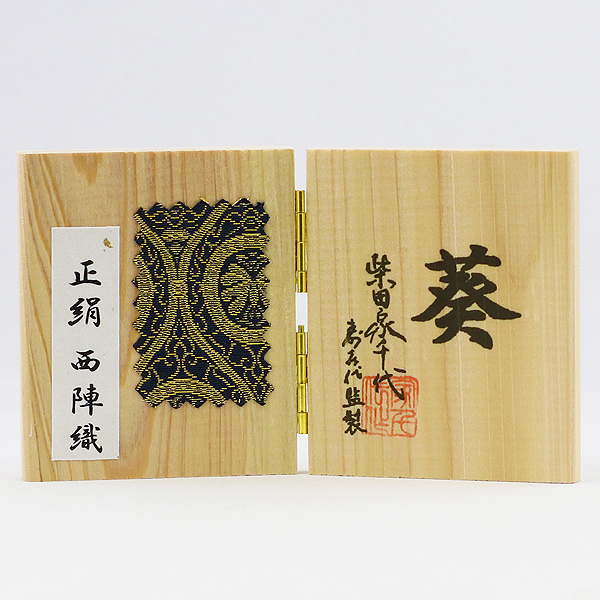 葵
柴田家千代
寿古代監製
正絹 西陣織